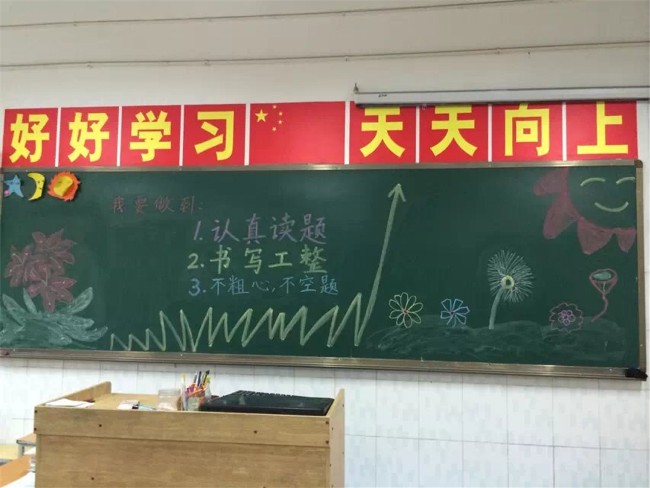 好好学习 天天向上
我要做到:
1.认真读题
2.书写工整
3.不粗心,不空题